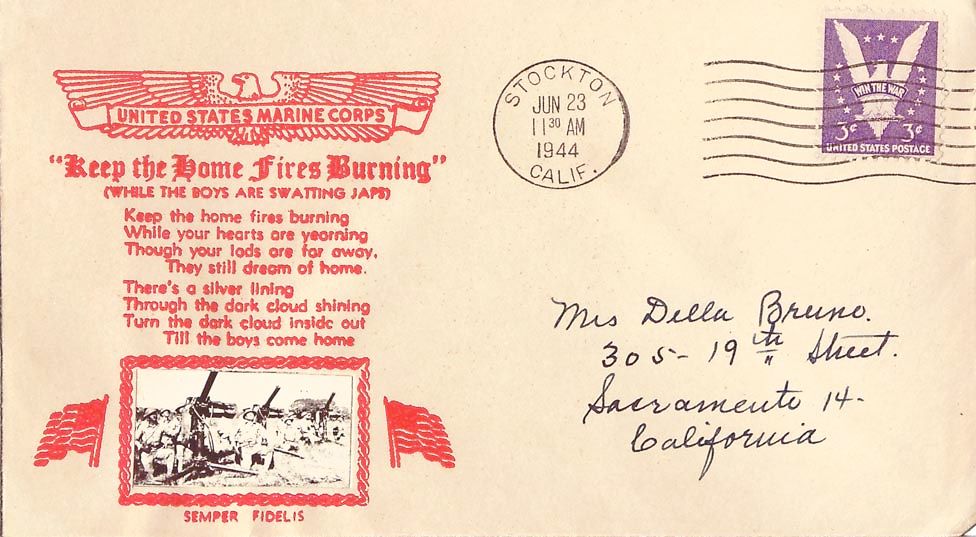 UNITED STATES MARINE CORPS
"Keep the Home Fires Burning"
(WHILE THE BOYS ARE SWATTING JAPS)
Keep the home fires burning
While your hearts are yearning
Though your lads are far away,
They still dream of home.
There's a silver lining
Through the dark cloud shining
Turn the dark cloud inside out
Till the boys come home
SEMPER FIDELIS
STOCKTON
JUN 23
11 30 AM
1944
CALIF.
WIN THE WAR
3¢ 3¢
UNITED STATES POSTAGE
Mrs Della Bruno.
305- 19th Street.
Sacramento 14-
California